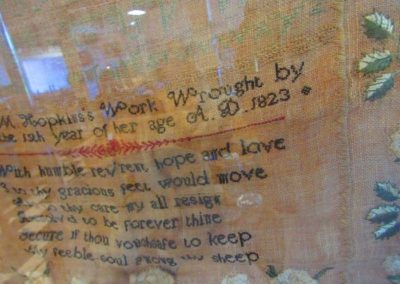 M. Hopkins's Work Wrought by
the 12th year of her age A. D. 1823
With humble rev'rent hope and love
to thy gracious feet would move
to thy care my all resign
Resolv'd to be forever thine
Secure if thou vouchsafe to keep
My feeble soul among thy sheep